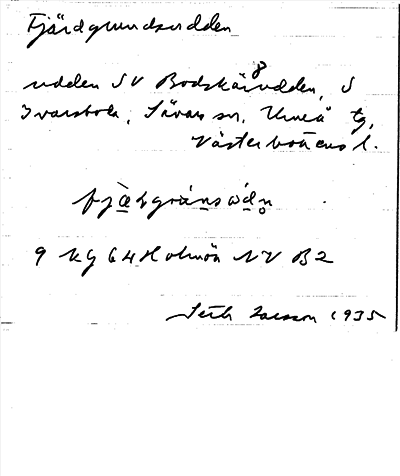 Fjärdgrundsudden
udden SV Bodskärsudden, S
Ivarsboda, Sävars sn, Umeå tg,
Västerbottens l.
9 Kg 64 Holmön NV B2
Seth Larsson 1935